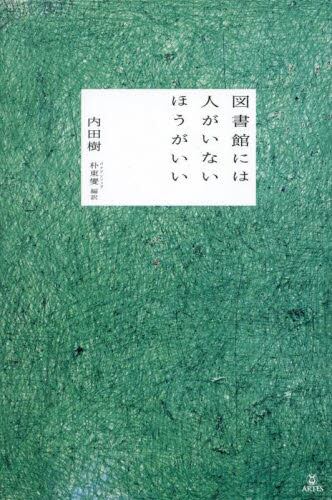 図書館には
人がいない
ほうがいい
内田樹
朴東燮 編訳
パクドンソップ
ARTES